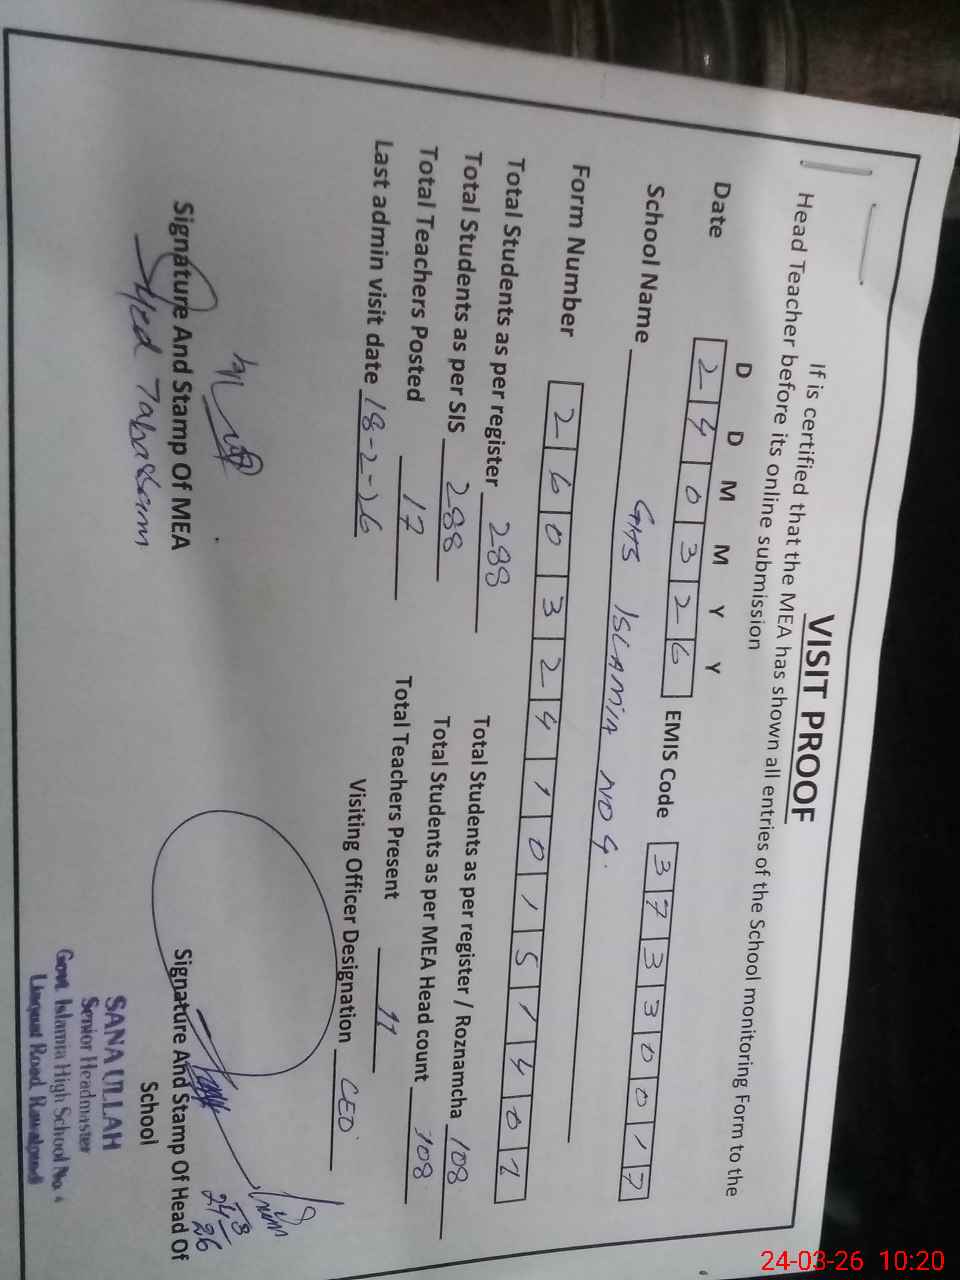 VISIT PROOF
If is certified that the MEA has shown all entries of the School monitoring Form to the
Head Teacher before its online submission
D D M M Y Y
Date 2 4 0 3 2 6 EMIS Code 3 7 3 3 0 0 1 7
School Name GHS ISLAMIA NO 4.
Form Number 2 6 0 3 2 4 1 0 1 5 1 4 0 1
Total Students as per register 288 Total Students as per register / Roznamcha 108
Total Students as per SIS 288 Total Students as per MEA Head count 108
Total Teachers Posted 17 Total Teachers Present 11
Last admin visit date 18-2-26 Visiting Officer Designation CEO
Signature And Stamp Of MEA
Tabassum
Signature And Stamp Of Head Of
School
24-3-26
SANA ULLAH
Senior Headmaster
Govt. Islamia High School No. 4
Liaquat Road, Rawalpindi
24-03-26 10:20